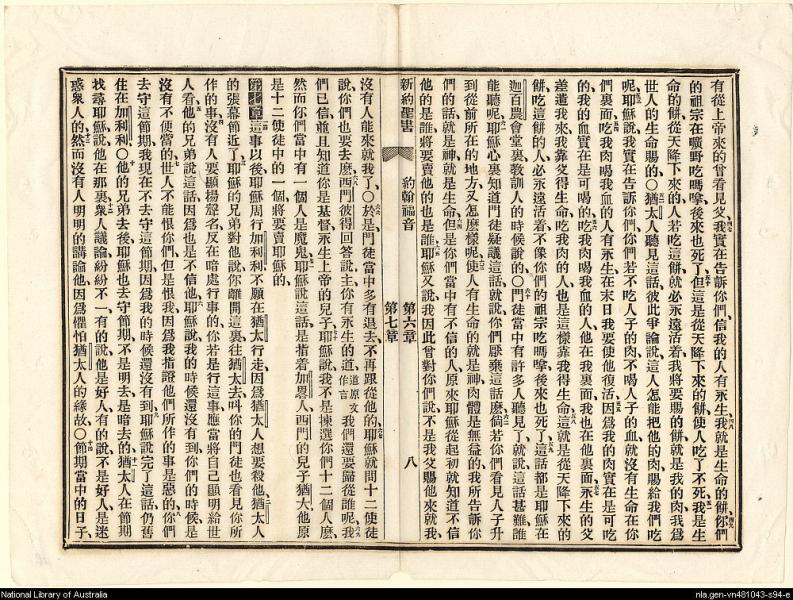 有從上帝來的曾看見父我實在告訴你們信我的人有永生我就是生命的餅你們
的祖宗在曠野吃嗎嗱後來也死了但這是從天降下來的餅使人吃了不死我是生
命的餅從天降下來的人若吃這餅就必永遠活着我將要賜的餅就是我的肉我爲
世人的生命賜的〇猶太人聽見這話彼此爭論說這人怎能把他的肉賜給我們吃
呢耶穌說我實在告訴你們你們若不吃人子的肉不喝人子的血就沒有生命在你
們裏面吃我肉喝我血的人有永生在末日我要使他復活因爲我的肉實在是可吃
的我的血實在是可喝的吃我肉喝我血的人他在我裏面我也在他裏面永生的父
差遣我來我靠父得生命吃我肉的人也是這樣靠我得生命這就是從天降下來的
餅吃這餅的人必永遠活着不像你們的祖宗吃嗎嗱後來也死了這話都是耶穌在
迦百農會堂裏教訓人的時候說的〇門徒當中有許多人聽見了就說這話甚難誰
能聽呢耶穌心裏知道門徒疑議這話就說你們厭棄這話麽倘若你們看見人子升
到從前所在的地方又怎麽樣呢使人有生命的就是神肉體是無益的我所告訴你
們的話就是神就是生命但是你們當中有不信的人原來耶穌從起初就知道不信
他的是誰將要賣他的也是誰耶穌又說我因此曾對你們說不是我父賜他來就我
新約聖書 約翰福音 第六章 第七章 八
沒有人能來就我了〇於是門徒當中多有退去不再跟從他的耶穌就問十二使徒
說你們也要去麽西門彼得回答說主你有永生的道道原文作言我們還要歸從誰呢我
們已信並且知道你是基督永生上帝的兒子耶穌說我不是揀選你們十二個人麽
然而你們當中有一個人是魔鬼耶穌說這話是指着加畧人西門的兒子猶大他原
是十二使徒中的一個將要賣耶穌的
第七章這事以後耶穌周行加利利不願在猶太行走因爲猶太人想要殺他猶太人
的張幕節近了耶穌的兄弟對他說你離開這裏往猶太去叫你的門徒也看見你所
作的事沒有人要顯揚聲名反在暗處行事的你若是行這事應當將自己顯明給世
人看他的兄弟說這話因爲也是不信他耶穌說我的時候還沒有到你們的時候是
沒有不便當的世人不能恨你們但是恨我因爲我指證他們所作的事是惡的你們
去守這節期我現在不去守這節期因爲我的時候還沒有到耶穌說完了這話仍舊
住在加利利〇他的兄弟去後耶穌也去守節期不是明去是暗去的猶太人在節期
找尋耶穌說他在那裏衆人議論紛紛不一有的說他是好人有的說不是好人是迷
惑衆人的然而沒有人明明的講論他因爲懼怕猶太人的緣故〇節期當中的日子
National Library of Australia
nla.gen-vn481043-s94-e